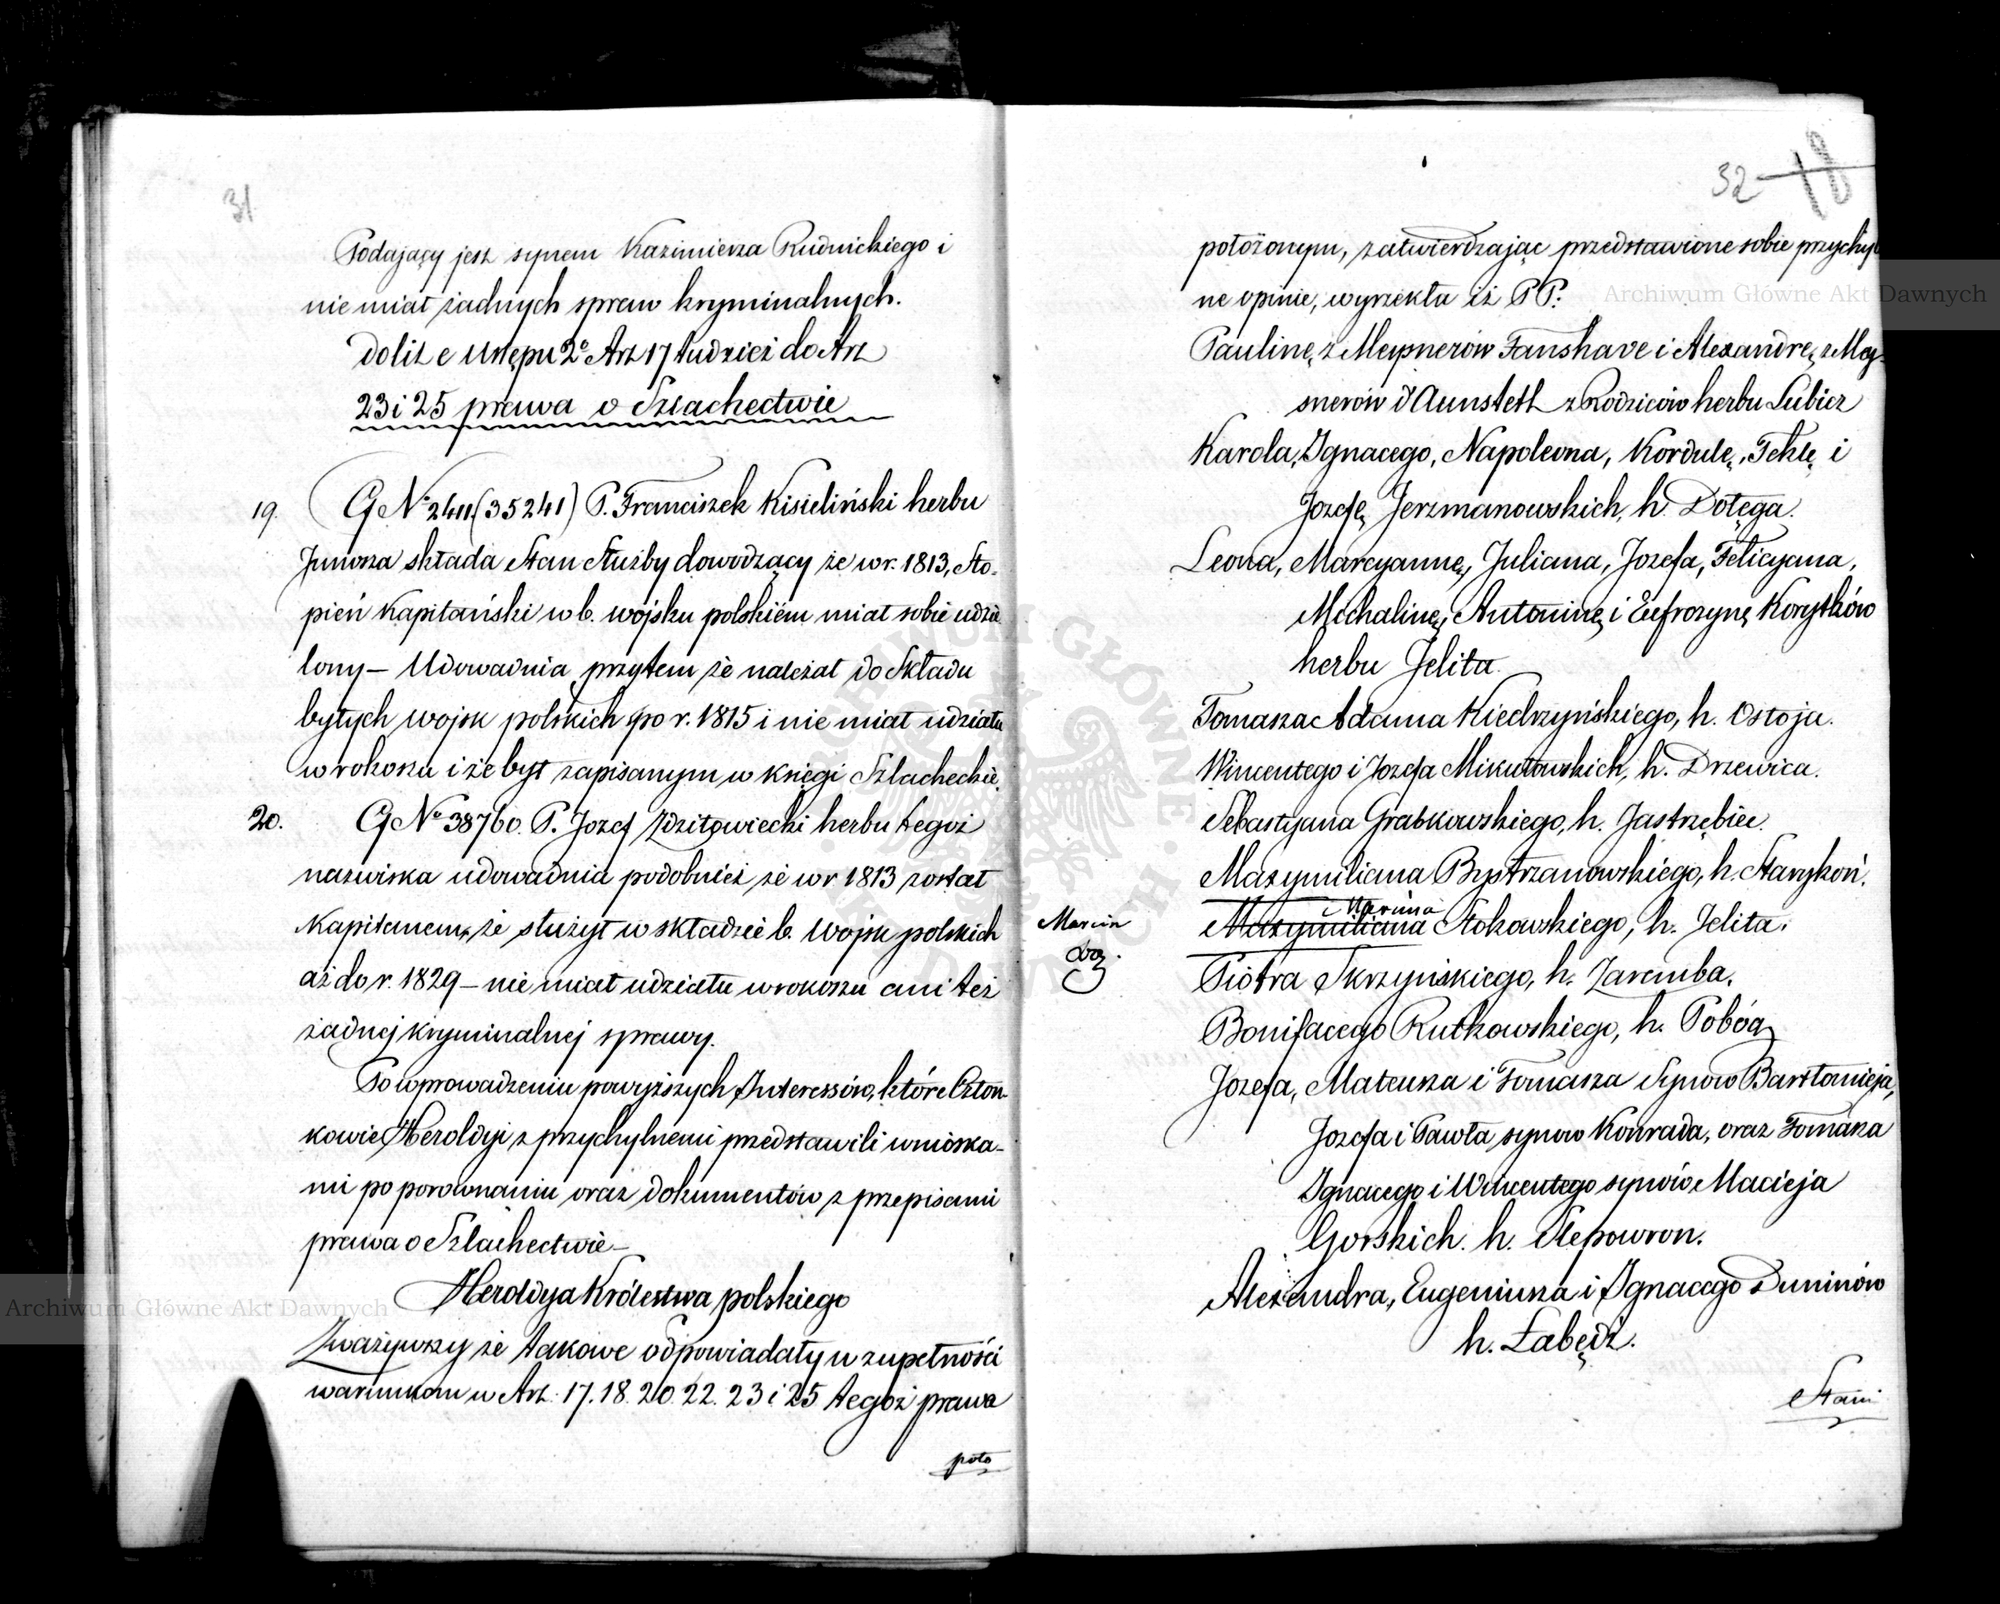 31
Podający jest synem Kazimierza Rudnickiego i
nie miał żadnych spraw kryminalnych.
do lit e Ustępu 2º Art 17 tudzież do Art
23 i 25 prawa o Szlachectwie
19. G Nº 2411 (35241) P. Franciszek Kisieliński herbu
Junosza składa Stan Służby dowodzący że w r. 1813, Sto-
pień Kapitański w b. wojsku polskiém miał sobie udzie
lony – Udowadnia przytem że należał do Składu
byłych wojsk polskich po r. 1815 i nie miał udziału
w rokoszu i że był zapisanym w księgi Szlacheckie.
20. G Nº 38760. P. Jozef Zdzitowiecki herbu tegoż
nazwiska udowadnia podobnież że w r 1813 został
Kapitanem, że służył w składzie b. Wojsk polskich
aż do r. 1829 – nie miał udziału w rokoszu ani też
żadnej kryminalnej sprawy.
Po wprowadzeniu powyższych Interessów, które Człon-
kowie Heroldyi z przychylnemi przedstawili wnioska-
mi po porównaniu oraz dokumentów z przepisami
prawa o Szlachectwie –
Heroldya Królestwa polskiego
Zważywszy że takowe odpowiadały w zupełności
warunkom w Art. 17. 18. 20. 22. 23 i 25 tegoż prawa
poło
32 18
położonym, zatwierdzając przedstawione sobie przychyl
ne opinie, wyrzekła iż PP:
Paulinę z Meysnerów Fanshave i Alexandrę z Mey-
snerów d'Aunstett z Rodziców herbu Lubicz
Karola, Ignacego, Napoleona, Kordulę, Teklę i
Jozefę Jerzmanowskich, h. Dołęga.
Leona, Marcyannę, Juliana, Jozefa, Felicyana,
Michalinę, Antoninę i Eufrozynę Korytków
herbu Jelita.
Tomasza Adama Kiedrzyńskiego, h. Ostoja.
Wincentego i Jozefa Mikułowskich, h. Drzewica.
Sebastyana Grabkowskiego, h. Jastrzębiec.
Maxymiliana Bystrzanowskiego, h. Starykoń.
Marcin
Marcina
Maxymiliana Stokowskiego, h. Jelita.
Piotra Skrzyńskiego, h. Zaremba.
Bonifacego Rutkowskiego, h. Pobóg
Jozefa, Mateusza i Tomasza Synów Bartłomieja,
Jozefa i Pawła synów Konrada, oraz Tomasza
Ignacego i Wincentego synów Macieja
Gorskich. h. Slepowron.
Alexandra, Eugeniusza i Ignacego Duninów
h. Łabędź.
Stani
Archiwum Główne Akt Dawnych
Archiwum Główne Akt Dawnych
ARCHIWUM GŁÓWNE AKT DAWNYCH